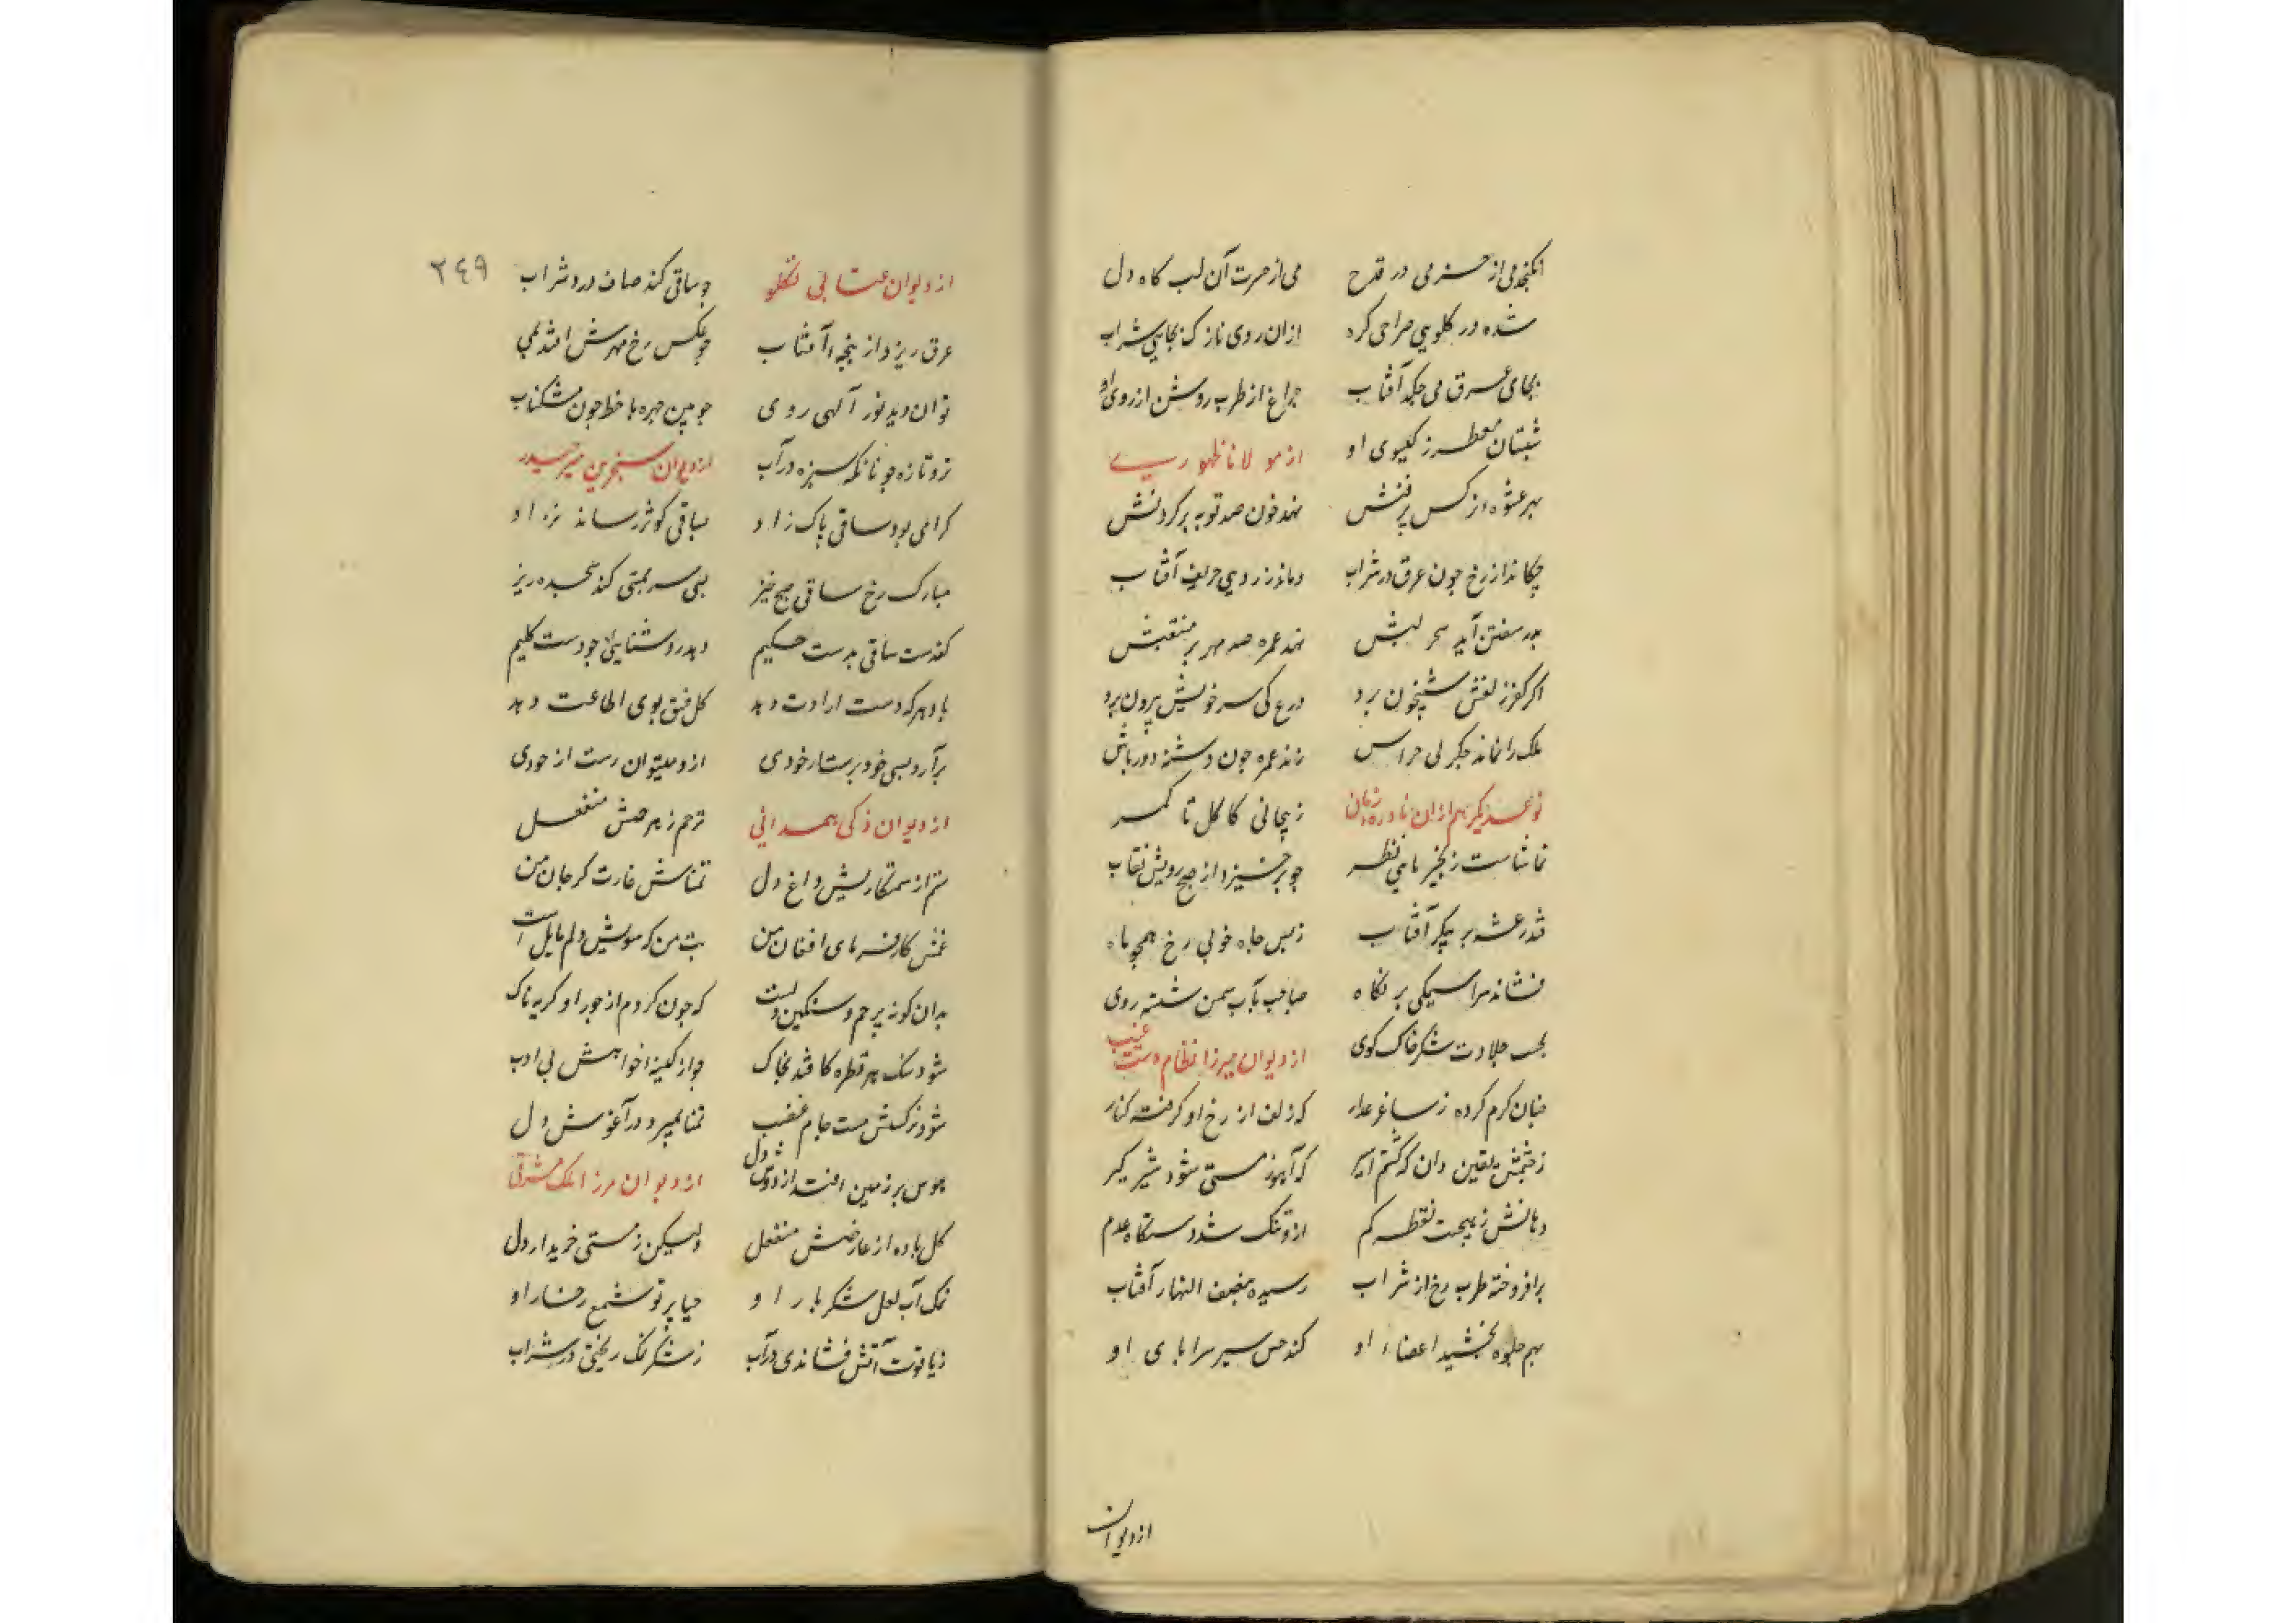 نکنجد می از خرمی در قدح می از حسرت آن لب کاه دل
شده در کلویی صراحی کره از ان روی نازک بجایی شراب
بجای عرق می چکد آفتاب چراغ از طرب روشن از روی او
شبستان معطر ز کیسوی او از مولانا ظهوری
بهر عشوه نرکس پرفنش نهد خون صد توبه بر کردنش
چکاند از رخ چون عرق در شراب دماند ز روی حریف آفتاب
بدر سفتن آید سحر لبش نهد غمزه صد مهر بر منقبش
اکر کفر زلفش شبیخون برد درع کی سر خویش بیرون برد
ملک را نماند جکر بی خراس زند غمزه چون دشنه دورباش
نوعدیکر هم از ان نادره زمان ز پیچانی کاکل تا کمر
تماشاست زنجیر پای نظر چو برخیزد از صبح رویش نقاب
فتد رعشه بر پیکر آفتاب ز بس جاه خوبی رخ همچو ماه
فشاند سراسیمکی بر نکاه صباحب بآب سمن شسته روی
بحسب حلاوت شکر خاک کوی از دیوان میرزا نظام دست غیب
چنان کرم کرده ز ساغر عذار که زلف از رخ او کرفته کنار
ز چشمش یقین دان که کشتم اسیر که آهو ز مستی شود شیرکیر
دهانش ز هیچست نقطه کم ازو تنک شد دستکاه عدم
برافروخته طرب رخ از شراب رسیده بنصف النهار آفتاب
بهم جلوه بخشید اعضاء او کند حسن سیر سراپای او
از دیوان
از دیوان عتابی تکلو چو ساقی کند صاف در در شراب ٢٤٩
عرق ریزد از پنجه آفتاب چو عکس رخ مهرش افتد بمی
توان دید نور آلهی روی چو بین چهره با خط چون مشکناب
تر و تازه چونانکه سبزه در آب از دیوان سنجر بن میر حیدر
کرامی بود ساقی پاک زاد بساقی کوثر رساند نژاد
مبارک رخ ساقی صبح خیز بسی سر بمستی کند سجده ریز
کف دست ساقی بدست حکیم دهد روشنایی چو دست کلیم
باو هر که دست ارادت دهد کل فسق بوی اطاعت دهد
برآرد بسی خودپرستار خودی ازو میتوان رست از خودی
از دیوان ذکی همدانی ترحم ز بیرحمش منفعل
ستم از ستمکاریش داغ دل تمناش غارت کر جان من
غمش کارفرمای افغان من بت من که سویش دلم مایل است
بدان کونه پرحم و سنکین دلست که چون کردم از جور او کریه ناک
شود سنک هر قطره کافتد بخاک چو از کینه خواهش بی ادب
شود نرکسش مست جام غضب تمنا بمیرد در آغوش دل
هوس بر زمین افتد از دوش دل از دیوان مرزا ملک مشرقی
کل باده از عارضش منفعل ولیکن ز مستی خریدار دل
نمک آب لعل شکربار او حیا پرتو شمع رخسار او
ز یاقوت آتش فشاندی در آب ز شکر نمک ریختی در شراب